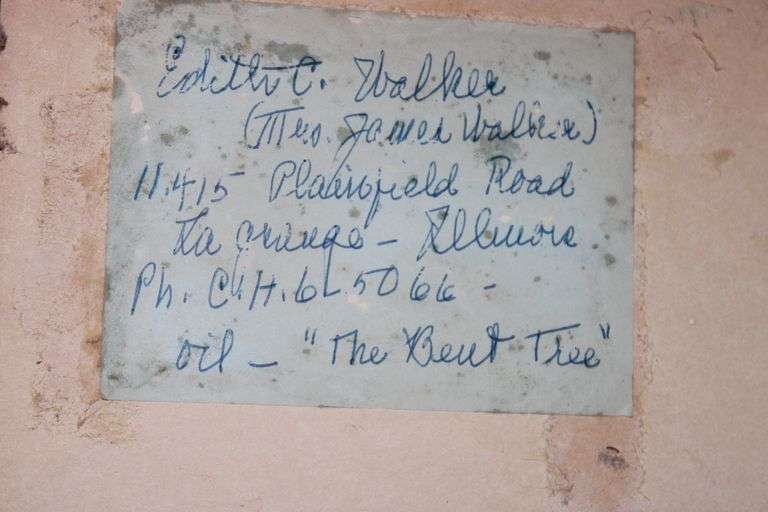 Edith C. Walker
(Mrs. James Walker)
11415 Plainfield Road
La Grange – Illinois
Ph. C.H. 6-5066 –
oil – "The Bent Tree"